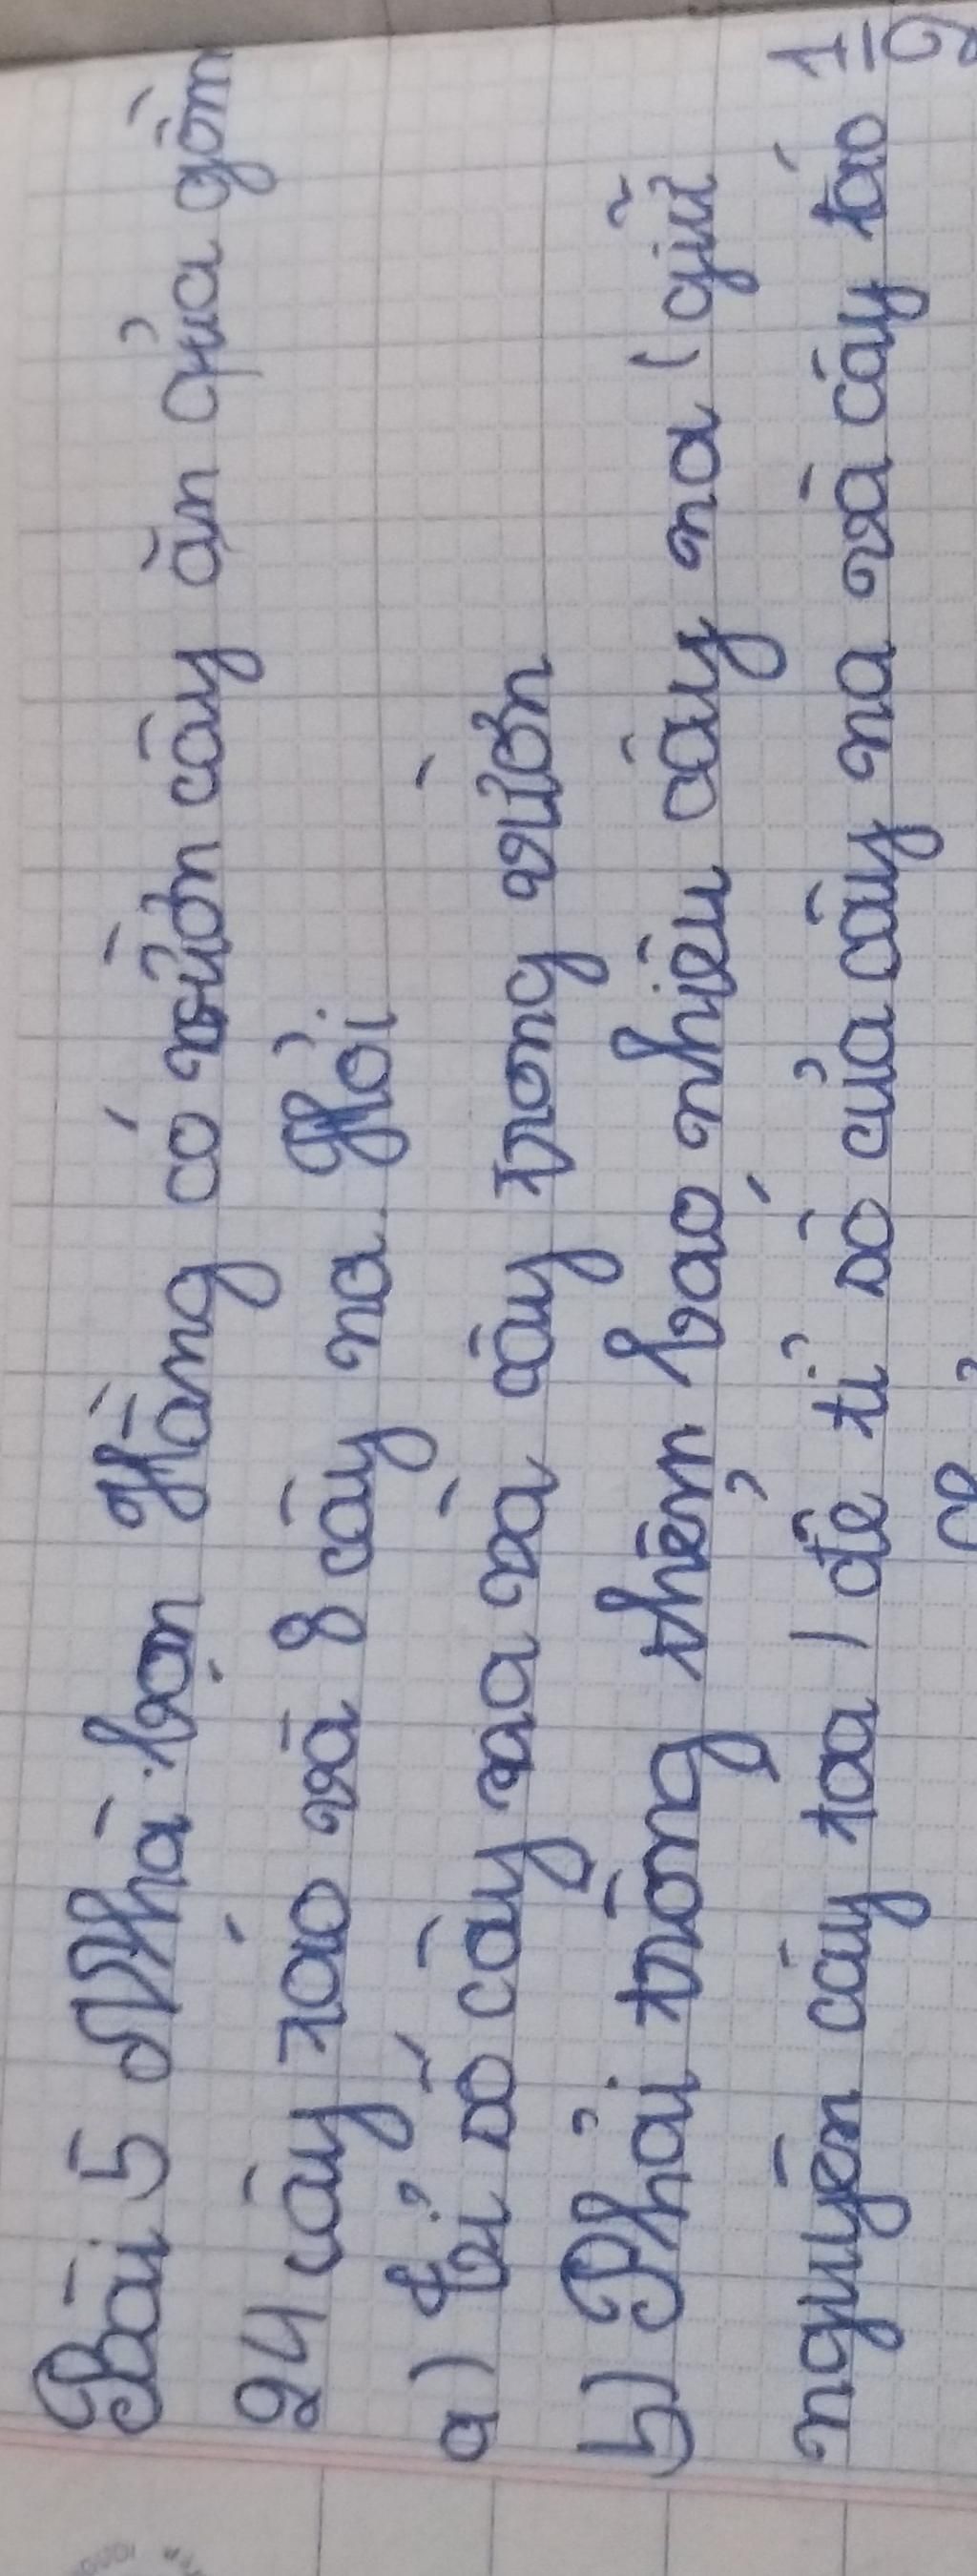 Bài 5 Nhà bạn Hằng có vườn cây ăn quả gồm
24 cây táo và 8 cây na. Hỏi
a) tỉ số cây na và cây trong vườn
b) Phải trồng thêm bao nhiêu cây na (giữ
nguyên cây toa) để tỉ số của cây na và cây táo 1/2